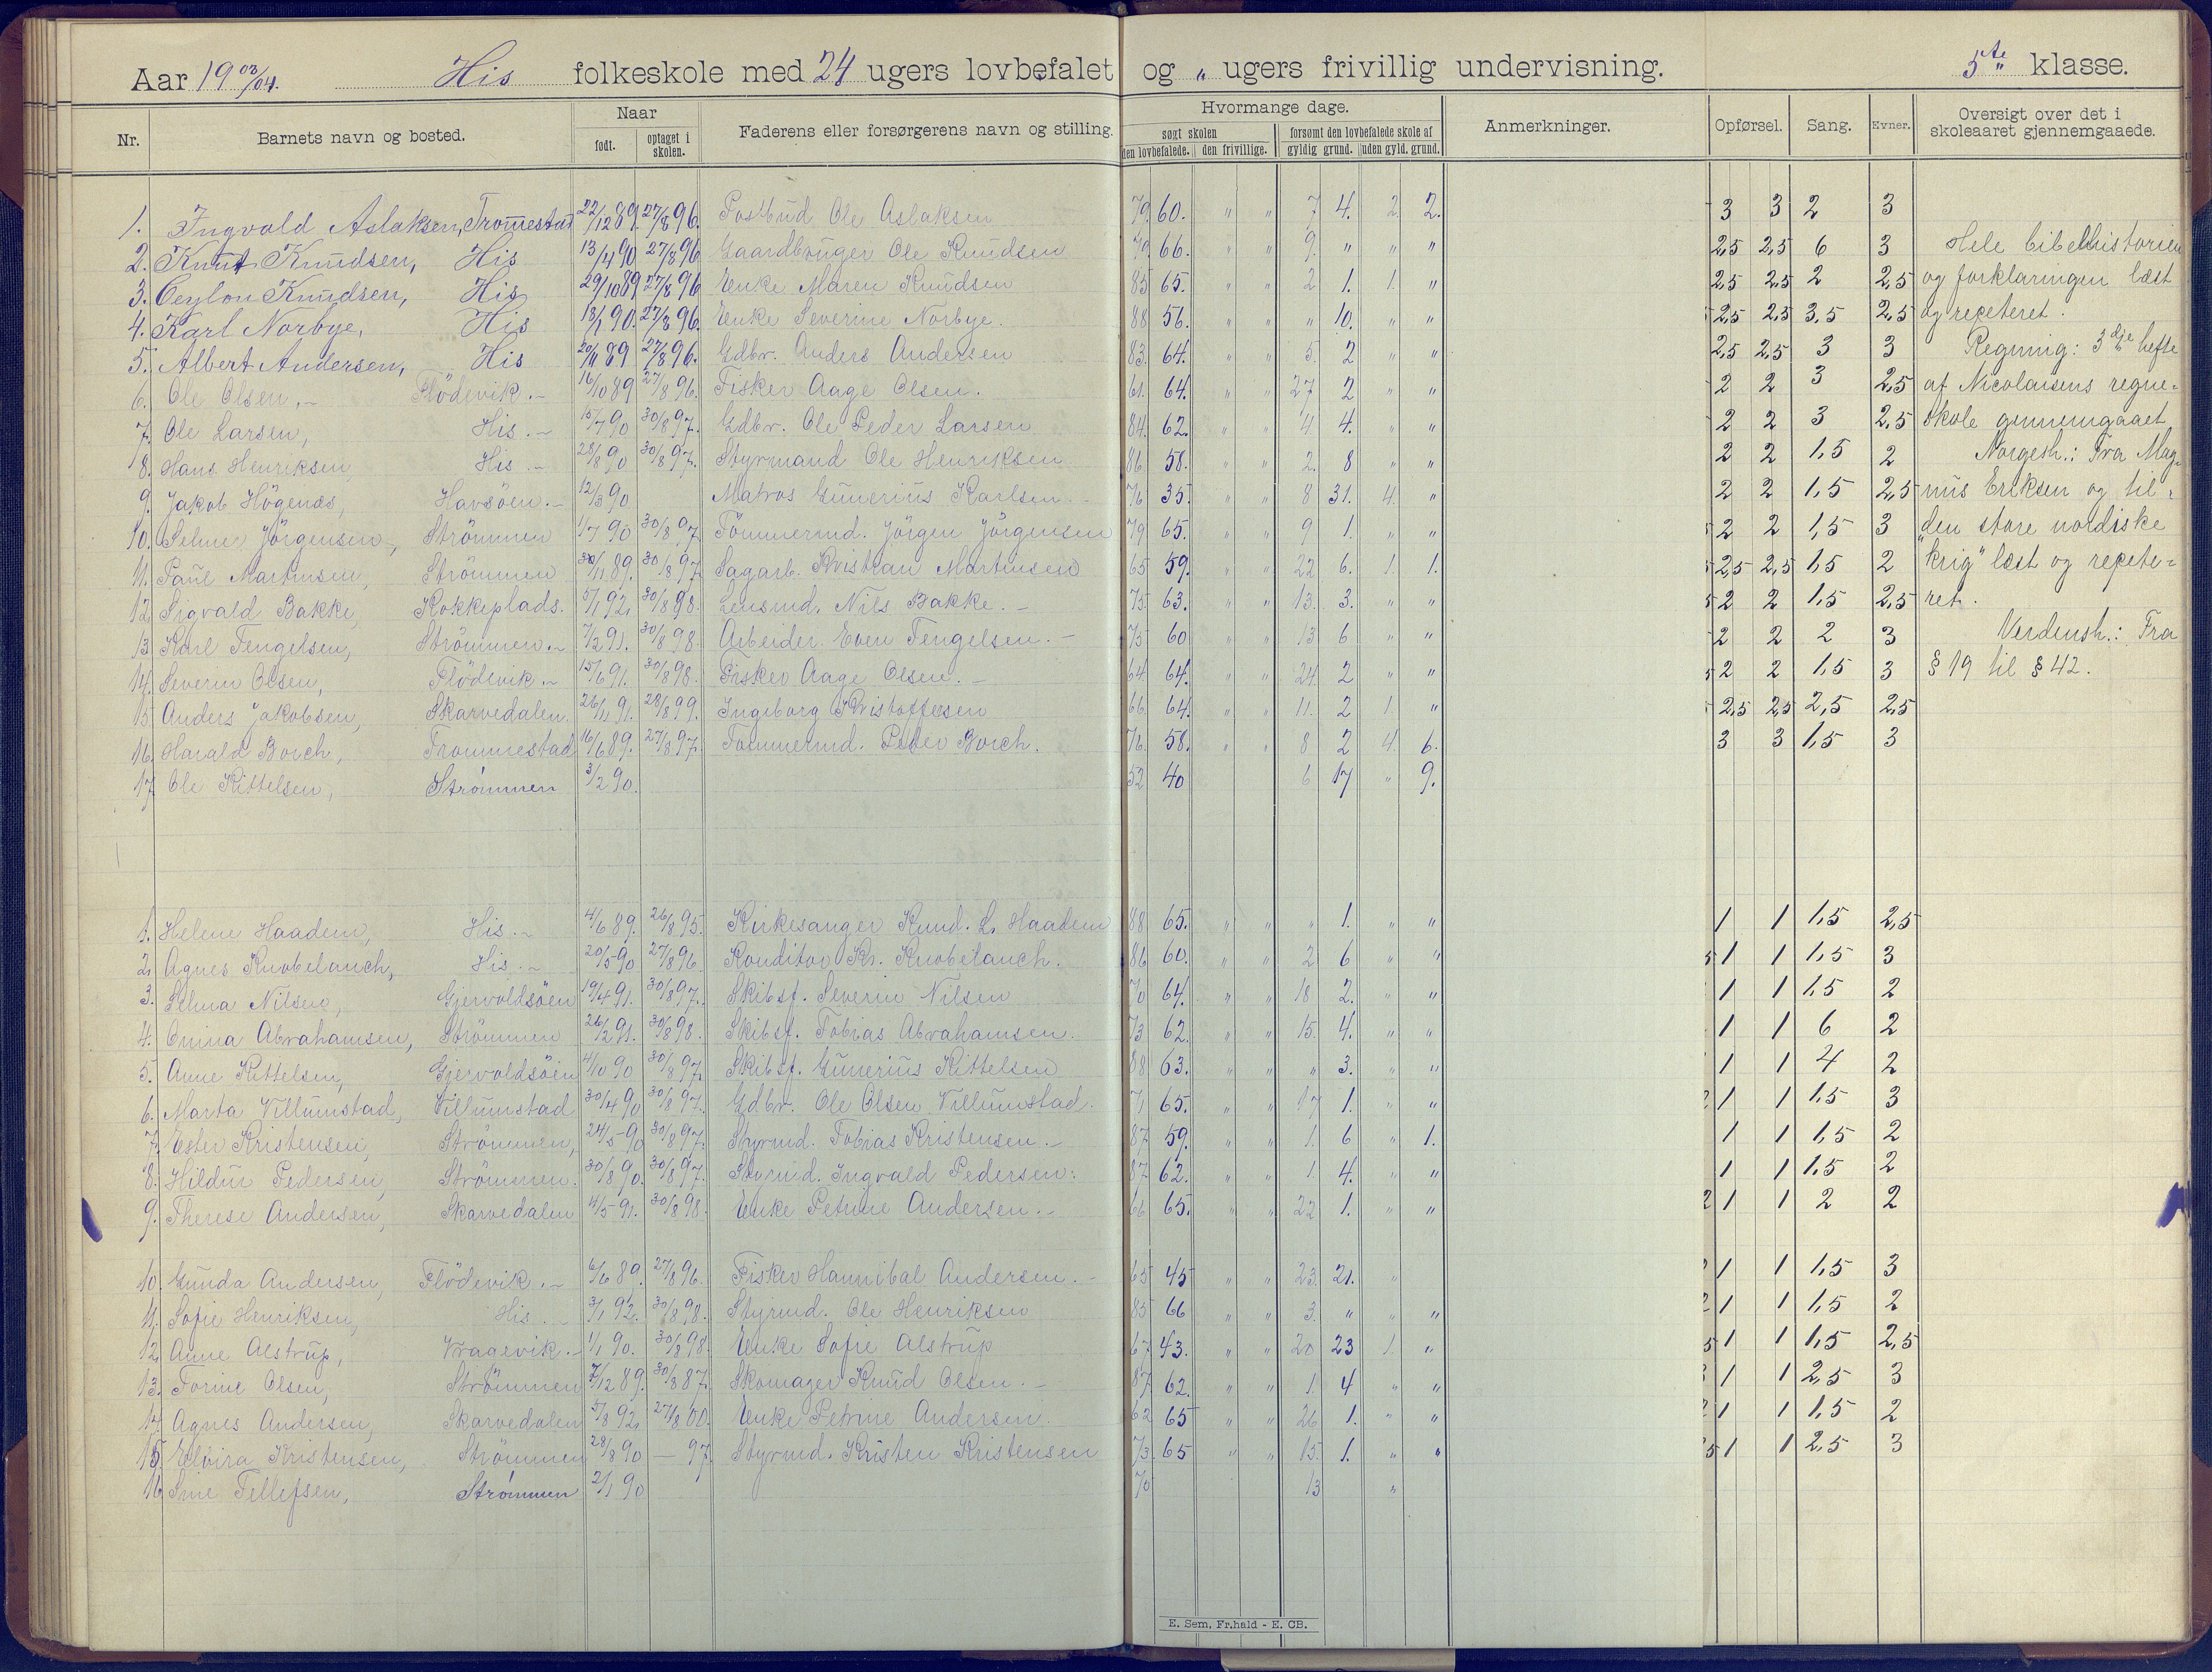 Aar 19 03/04. His folkeskole med 24 ugers lovbefalet og " ugers frivillig undervisning. 5te klasse.
Nr. Barnets navn og bosted. Naar født. optaget i skolen. Faderens eller forsørgerens navn og stilling. Hvormange dage. søgt skolen den lovbefalede. den frivillige. forsømt den lovbefalede skole af gyldig grund. uden gyld. grund. Anmerkninger. Opførsel. Sang. Evner. Oversigt over det i skoleaaret gjennemgaaede.
1. Ingvald Aslaksen, Tromestad 22/12 89. 27/8 96. Postbud Ole Aslaksen 79. 60. " " 7 4. 2. 2. 3 3 2 3
2. Knut Knudsen, His 13/4 90 27/8 96 Gaardbruger Ole Knudsen 79. 66. " " 9. " " " 2,5 2,5 6 3 Hele bibelhistorien
3. Ceylon Knudsen, His 29/10 89 27/8 96 Enke Maren Knudsen 85 65. " " 2 1. 1. " 2,5 2,5 2 2,5 og forklaringen læst
4. Karl Norbye, His 18/1 90. 27/8 96. Enke Severine Norbye. 88 56. " " " 10. " " 2,5 2,5 3,5 2,5 og repeteret.
5. Albert Andersen, His 20/11 89 27/8 96. Gdbr. Anders Andersen 83. 64. " " 5. 2 " " 2,5 2,5 3 3 Regning: 3dje hefte
6. Ole Olsen, Flödevik. 16/10 89 27/8 96. Fisker Aage Olsen. 61. 64. " " 27 2 " " 2 2 3 2,5 af Nicolaisens regne=
7. Ole Larsen, His. 15/7 90 30/8 97. Gdbr. Ole Peder Larsen 84. 62. " " 4 4. " " 2 2 3 2,5 skole gennemgaaet
8. Hans Henriksen, His. 28/8 90 30/8 97. Styrmand Ole Henriksen 86 58. " " 2. 8 " " 2 2 1,5 2 Norgesh.: Fra Mag-
9. Jakob Högenæs, Havsöen. 12/3 90 Matros Gunerius Karlsen. 76 35. " " 8 31. 4. " 2 2 1,5 2,5 nus Eriksen og til
10. Selmer Jörgensen, Strömmen 1/7 90 30/8 97. Tömmermd. Jörgen Jörgensen 79 65. " " 9 1. " " 2 2 1,5 3 "den store nordiske
11. Paul Martinsen, Strömmen 30/11 89. 30/8 97 Sagarb. Kristian Martinsen 65 59. " " 22 6. 1. 1. 2,5 2,5 1,5 2 krig" læst og repete=
12. Sigvald Bakke, Kokkeplads. 5/1 92, 30/8 98. Lensmd. Nils Bakke. 75 63. " " 13. 3. " " 2 2 1,5 2,5 ret.
13 Karl Tengelsen, Strömmen. 7/2 91. 30/8 98 Arbeider Even Tengelsen. 75 60 " " 13 6 " " 2 2 2 3 Verdensh.: Fra
14. Severin Olsen, Flödevik 15/6 91. 30/8 98. Fisker Aage Olsen. 64 64. " " 24. 2 " " 2 2 1,5 3 § 19 til § 42.
15 Anders Jakobsen, Skarvedalen. 26/11 91. 28/8 99. Ingeborg Kristoffersen 66. 64. " " 11. 2 1. " 2,5 2,5 2,5 2,5
16. Harald Borch, Trommestad 16/6 89. 27/8 97. Tömmermd. Peder Borch. 76. 58. " " 8 2 4. 6. 3 3 1,5 3
17. Ole Kittelsen, Strömmen 3/2 90. 52 40 6 17 " 9.
1. Helene Haadem, His. 4/6 89. 26/8 95. Kirkesanger Knud. L. Haadem 88 65. " " " 1. " " 1 1 1,5 2,5
2. Agnes Knobelauch, His. 20/5 90 27/8 96 Konditor Kr. Knobelauch. 86 60. " " 2 6 " " 1 1 1,5 3
3. Selma Nilsen, Gjervoldsöen 19/4 91. 30/8 97. Skibsf. Severin Nilsen 70 64. " " 18 2. " " 1 1 1,5 2
4. Omina Abrahamsen, Strömmen 26/2 91. 30/8 98. Skibsf. Tobias Abrahamsen. 73 62. " " 15. 4. " " 1 1 6 2
5. Anne Kittelsen, Gjervoldsöen 4/10 90 30/8 97. Skibsf. Gunerius Kittelsen 88 63. " " " 3. " " 1 1 4 2
6. Marta Villumstad, Villumstad 30/4 90 30/8 97. Gdbr. Ole Olsen Villumstad. 71 65. " " 17 1. " " 1 1 1,5 3
7. Ester Kristensen, Strömmen, 24/5 90 30/8 97. Styrmd. Tobias Kristensen. 87. 59. " " 1. 6 " 1. 1 1 1,5 2
8. Hildur Pedersen, Strömmen. 30/8 90. 30/8 97. Styrmd. Ingvald Pedersen: 87 62. " " 1. 4. " " 1 1 1,5 2
9. Therese Andersen, Skarvedalen 4/5 91. 30/8 98. Enke Petrine Andersen. 66 65. " " 22 1. " " 1 1 2 2
10. Gunda Andersen, Flödevik. 6/6 89. 27/8 96. Fisker Hannibal Andersen. 65 45 " " 23. 21. " 1 1 1,5 3
11. Sofie Henriksen, His. 3/1 92. 30/8 98. Styrmd. Ole Henriksen 85 66 " " 3. " " " 1 1 1,5 2
12. Anne Alstrup, Vragevik. 1/1 90. 30/8 98. Enke Sofie Alstrup 67 43. " " 20 23 1. " 1 1 1,5 2,5
13. Torine Olsen, Strömmen 7/12 89. 30/8 87. Skomager Knud Olsen. 87 62. " " 1. 4 " " 1 1 2,5 3
14. Agnes Andersen, Skarvedalen 5/8 92, 27/8 00. Enke Petrine Andersen. 62 65 " " 26 1. " " 1 1 1,5 2
15. Elvira Kristensen, Strömmen 28/8 90 — 97. Styrmd. Kristen Kristensen 73. 65 " " 15. 1. " " 1 1 2,5 3
16. Sine Tellefsen, Strömmen 2/1 90 70 13 "
E. Sem, Fr.hald - E. CB.